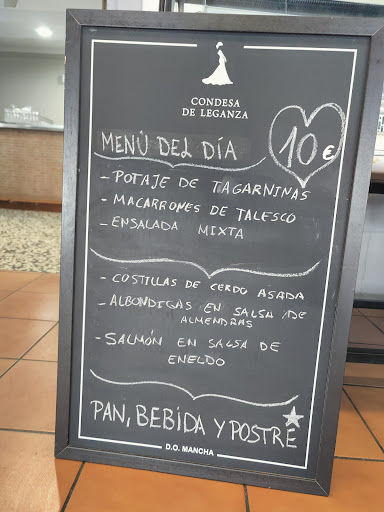 CONDESA
DE LEGANZA
MENÚ DEL DÍA
10 €
- POTAJE DE TAGARNINAS
- MACARRONES DE TALESCO
- ENSALADA MIXTA
- COSTILLAS DE CERDO ASADA
- ALBONDIGAS EN SALSA DE
ALMENDRAS
- SALMÓN EN SALSA DE
ENELDO
PAN, BEBIDA Y POSTRE
D.O. MANCHA